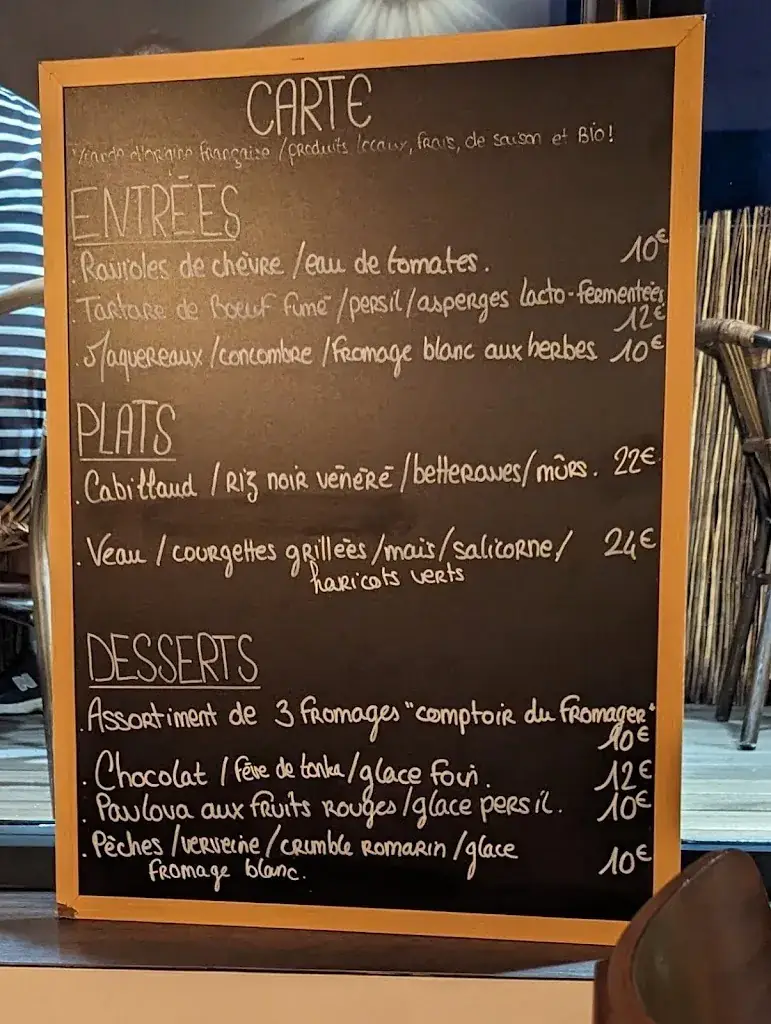 CARTE
Viande d'origine française / produits locaux, frais, de saison et Bio!
ENTRÉES
. Ravioles de chèvre / eau de tomates. 10€
. Tartare de Boeuf fumé / persil / asperges lacto-fermentées
12€
. Maquereaux / concombre / fromage blanc aux herbes 10€
PLATS
. Cabillaud / Riz noir vénéré / betteraves / mûrs. 22€
. Veau / courgettes grillées / maïs / salicorne / 24€
haricots verts
DESSERTS
. Assortiment de 3 fromages "comptoir du fromager"
10€
. Chocolat / fève de tonka / glace foin. 12€
. Pavlova aux fruits rouges / glace persil. 10€
. Pêches / verveine / crumble romarin / glace 10€
fromage blanc.